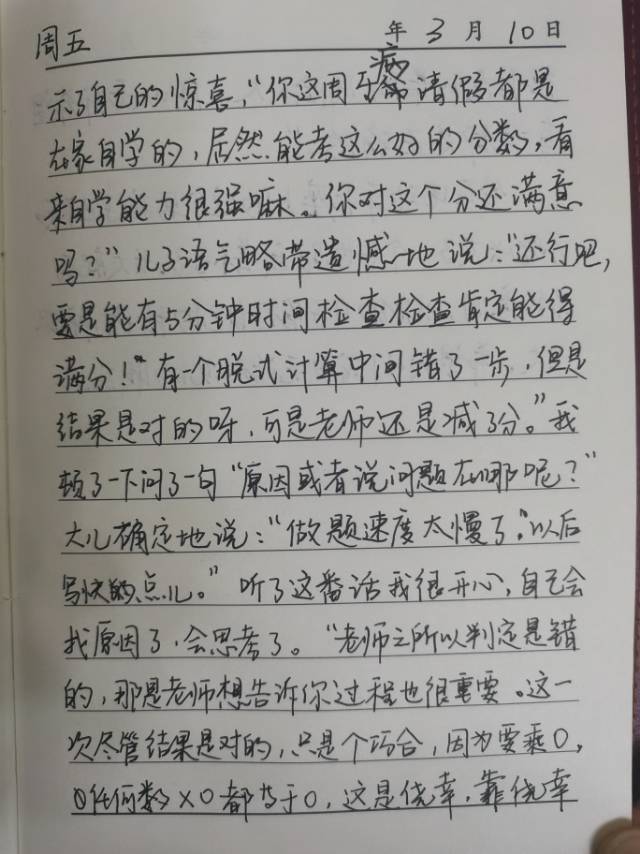 周五 年 3 月 10 日
示了自己的惊喜,“你这周因病请假都是
在家自学的,居然能考这么好的分数,看
来自学能力很强嘛。你对这个分还满意
吗?”儿子语气略带遗憾地说:“还行吧,
要是能有5分钟时间检查检查肯定能得
满分!”有一个脱式计算中间错了一步,但是
结果是对的呀,可是老师还是减了分。”我
顿了一下问了一句“原因或者说问题在哪呢?”
大儿确定地说:“做题速度太慢了。”以后
写快点儿。”听了这番话我很开心,自己会
找原因了,会思考了。“老师之所以判定是错
的,那是老师想告诉你过程也很重要。这一
次尽管结果是对的,只是个巧合,因为要乘0,
任何数×0都等于0,这是侥幸,靠侥幸